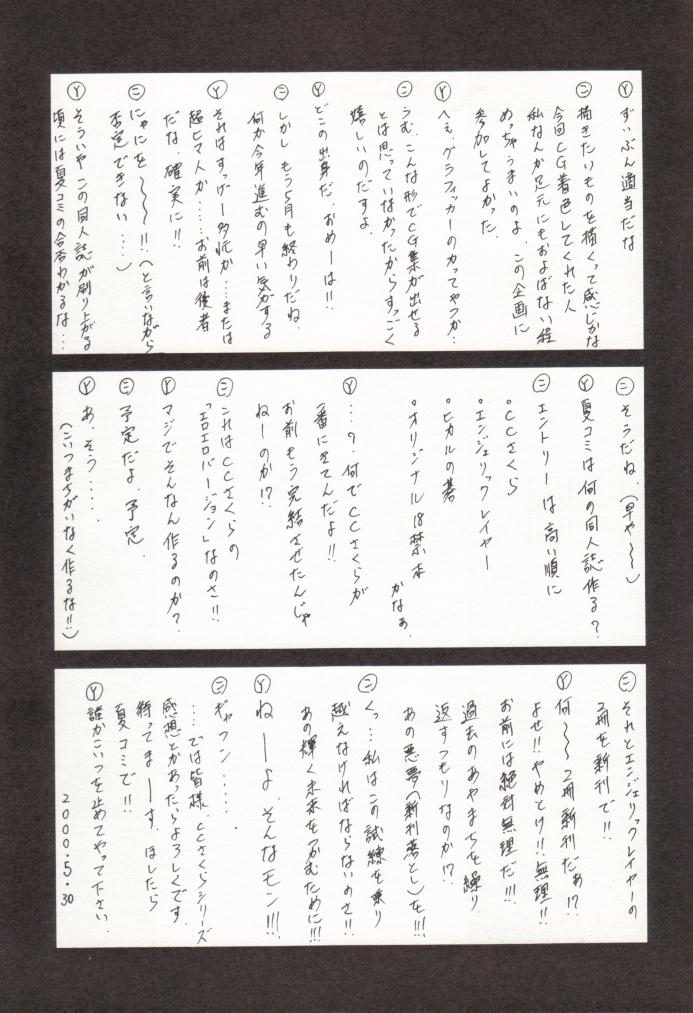 Ⓨ ずいぶん適当だな
㊁ 描きたいものを描くって感じかな
今回CG着色してくれた人
私なんか足元にもおよばない程
めっちゃうまいのよ、この企画に
参加してよかった。
Ⓨ へぇ、グラフィッカーのカってやつか…
㊁ うむ、こんな形でCG集が出せる
とは思っていなかったからすっごく
嬉しいのだすよ。
Ⓨ どこの出身だ、おめーは!!
㊁ しかし もう5月も終わりだね、
何か今年進むの早い気がする
Ⓨ それはすっげー多忙か…または
超ヒマ人か……お前は後者
だな、確実に!!
㊁ にゃにを〜〜〜!!(と言いながら
否定できない……)
Ⓨ そういやこの同人誌が刷り上がる
頃には夏コミの合否わかるな…
㊁ そうだね、(早や〜〜)
Ⓨ 夏コミは何の同人誌作る?
㊁ エントリーは高い順に
・CCさくら
・エンジェリックレイヤー
・ヒカルの碁
・オリジナル18禁本
かなぁ、
Ⓨ …?、何でCCさくらが
一番にきてんだよ!!
お前もう完結させたんじゃ
ねーのか!?
㊁ これはCCさくらの
「エロエロバージョン」なのさ!!
Ⓨ マジでそんなん作るのか?
㊁ 予定だよ、予定、
Ⓨ あ、そう……
(こいつまちがいなく作るな!!)
㊁ それとエンジェリックレイヤーの
2冊を新刊で!!
Ⓨ 何〜〜2冊新刊だぁ!?
よせ!!やめとけ!!無理!!
お前には絶対無理だ!!!
過去のあやまちを繰り
返すつもりなのか!?
あの悪夢(新刊落とし)を!!!
㊁ くっ…私はこの試練を乗り
越えなければならないのさ!!
あの輝く未来をつかむために!!!
Ⓨ ねーーよ そんなモン!!!
㊁ ギャフン……、
…では皆様、CCさくらシリーズ
感想とかあったらよろしくです、
待ってまーーす、ほしたら
夏コミで!!
Ⓨ 誰かこいつを止めてやって下さい、
2000.5.30